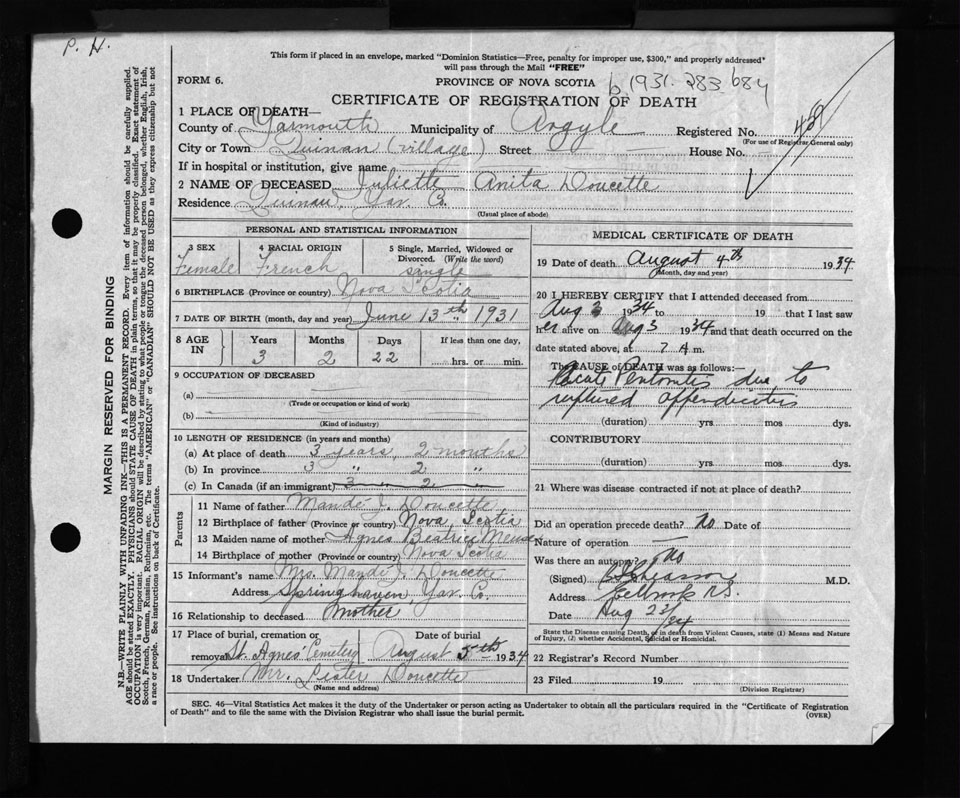 P. H.
This form if placed in an envelope, marked "Dominion Statistics—Free, penalty for improper use, $300," and properly addressed
will pass through the Mail "FREE"
FORM 6. PROVINCE OF NOVA SCOTIA b 1931. 283 684
CERTIFICATE OF REGISTRATION OF DEATH
1 PLACE OF DEATH—
County of Yarmouth Municipality of Argyle Registered No.
(For use of Registrar General only)
City or Town Quinan (village) Street — House No. —
If in hospital or institution, give name
2 NAME OF DECEASED Juliette Anita Doucette
Residence Quinan, Yar. Co.
(Usual place of abode)
PERSONAL AND STATISTICAL INFORMATION
3 SEX 4 RACIAL ORIGIN 5 Single, Married, Widowed or
Divorced. (Write the word)
Female French single
6 BIRTHPLACE (Province or country) Nova Scotia
7 DATE OF BIRTH (month, day and year) June 13th, 1931
8 AGE IN Years Months Days If less than one day,
3 2 22 hrs. or min.
9 OCCUPATION OF DECEASED
(a) —
(Trade or occupation or kind of work)
(b) —
(Kind of industry)
10 LENGTH OF RESIDENCE (in years and months)
(a) At place of death 3 years, 2 months
(b) In province 3 " 2 "
(c) In Canada (if an immigrant) 3 " 2 "
Parents
11 Name of father Mandé J. Doucette
12 Birthplace of father (Province or country) Nova Scotia
13 Maiden name of mother Agnes Beatrice
14 Birthplace of mother (Province or country) Nova Scotia
15 Informant's name Mrs. Mandé J. Doucette
Address Springhaven, Yar. Co.
16 Relationship to deceased Mother
17 Place of burial, cremation or Date of burial
removal St. Agnes' Cemetery August 5th 1934
18 Undertaker Mr. Lester Doucette
(Name and address)
MEDICAL CERTIFICATE OF DEATH
19 Date of death August 4th 1934
(Month, day and year)
20 I HEREBY CERTIFY that I attended deceased from
Aug 3 1934 to 19 that I last saw
her alive on Aug 3 1934 and that death occurred on the
date stated above, at 7 A m.
The CAUSE of DEATH was as follows:—
Acute Peritonitis due to
ruptured appendicitis
(duration) yrs. mos. dys.
CONTRIBUTORY
(duration) yrs. mos. dys.
21 Where was disease contracted if not at place of death?
Did an operation precede death? No Date of
Nature of operation —
Was there an autopsy? No
(Signed) M.D.
Address N.S.
Date Aug 22/34
State the Disease causing Death, or in death from Violent Causes, state (1) Means and Nature
of Injury, (2) whether Accidental, Suicidal or Homicidal.
22 Registrar's Record Number
23 Filed 19
(Division Registrar)
SEC. 46—Vital Statistics Act makes it the duty of the Undertaker or person acting as Undertaker to obtain all the particulars required in the "Certificate of Registration
of Death" and to file the same with the Division Registrar who shall issue the burial permit. (OVER)
MARGIN RESERVED FOR BINDING
N.B.—WRITE PLAINLY WITH UNFADING INK—THIS IS A PERMANENT RECORD. Every item of information should be carefully supplied.
AGE should be stated EXACTLY. PHYSICIANS should STATE CAUSE OF DEATH in plain terms, so that it may be properly classified. Exact statement of
OCCUPATION is very important. RACIAL ORIGIN will be described by stating to what people or tongue the deceased person belonged, whether English, Irish,
Scotch, French, German, Russian, Ruthenian, etc. The terms "AMERICAN" or "CANADIAN" SHOULD NOT BE USED as they express citizenship but not
a race or people. See instructions on back of Certificate.